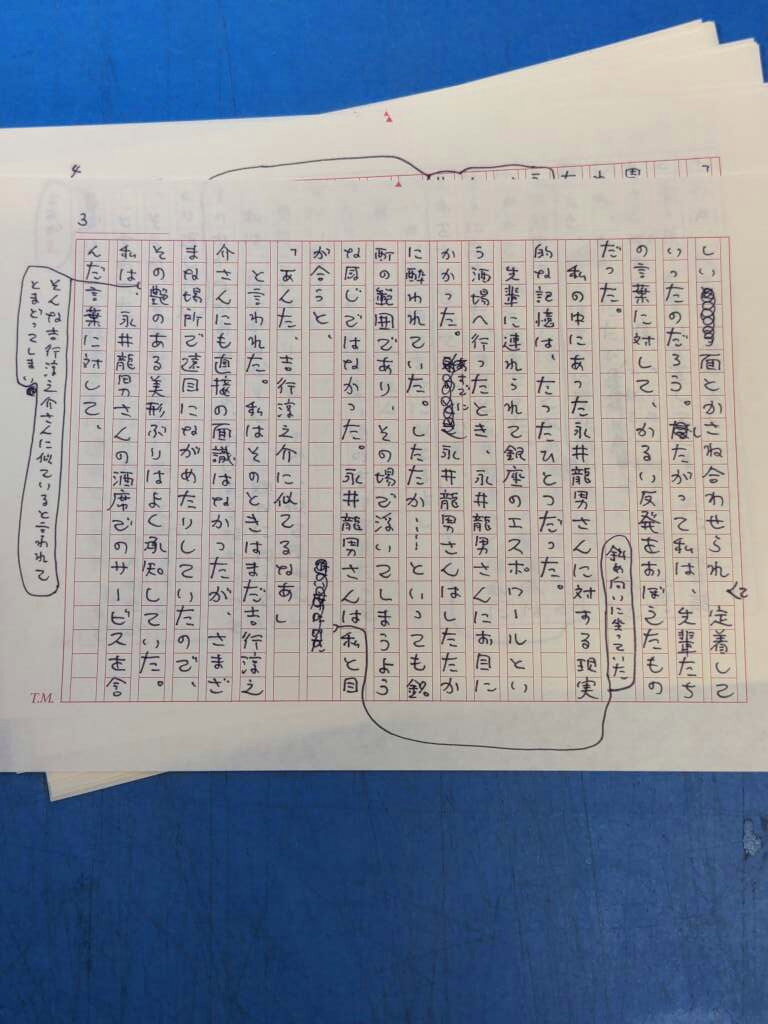 4
3
しい面とかさね合わせられて定着して
いったのだろう。したがって私は、先輩たち
の言葉に対して、かるい反発をおぼえたもの
だった。
私の中にあった永井龍男さんに対する現実
的な記憶は、たったひとつだった。
先輩に連れられて銀座のエスポワールとい
う酒場へ行ったとき、永井龍男さんにお目に
かかった。永井龍男さんはしたたか
に酔われていた。したたか……といっても銀
座の範囲であり、その場で浮いてしまうよう
な感じではなかった。永井龍男さんは私と目
斜め向いに坐っていた
が合うと、
「あんた、吉行淳之介に似てるなあ」
と言われた。私はそのときはまだ吉行淳之
介さんにも直接の面識はなかったが、さまざ
まな場所で遠目にながめたりしていたので、
その艶のある美形ぶりはよく承知していた。
私は、永井龍男さんの酒席でのサービスを含
んだ言葉に対して、
そんな吉行淳之介さんに似ていると言われて
とまどってしまい
T.M.